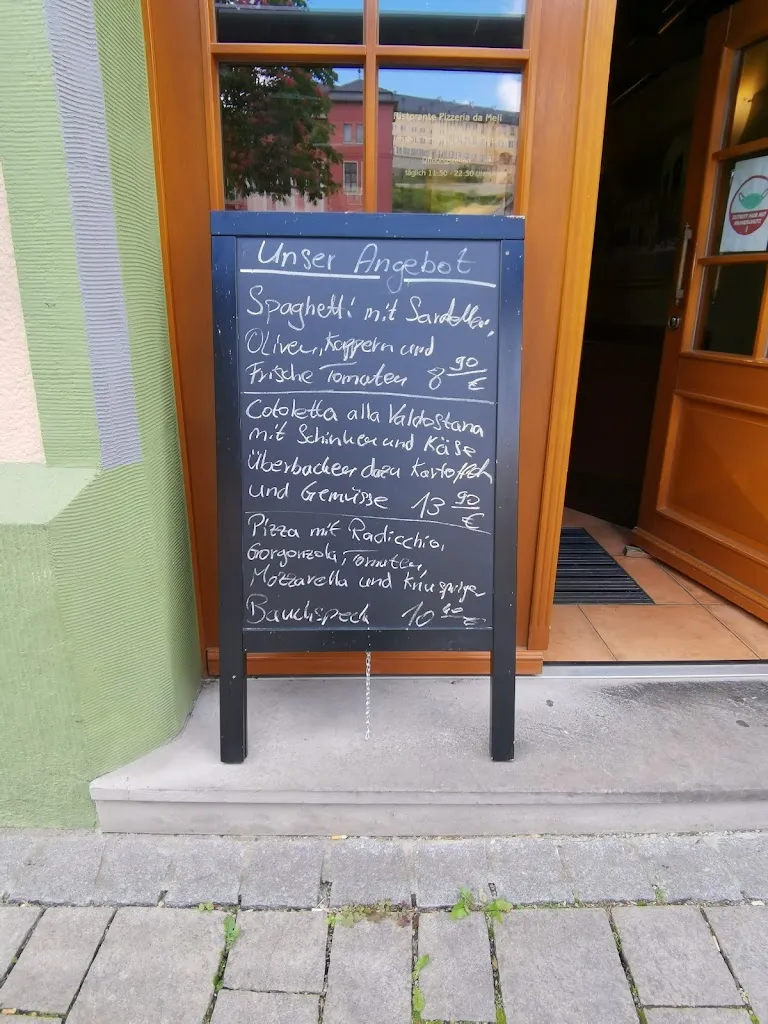 Ristorante Pizzeria da Meli
Öffnungszeiten
täglich 11:30 - 22:30 Uhr
Unser Angebot
Spaghetti mit Sardellen,
Oliven, Kappern und
Frische Tomaten 8 90 €
Cotoletta alla Valdostana
mit Schinken und Käse
Überbacken dazu Kartoffeln
und Gemüsse 13 90 €
Pizza mit Radicchio,
Gorgonzola, Tomaten,
Mozzarella und Knusprigen
Bauchspeck 10 €